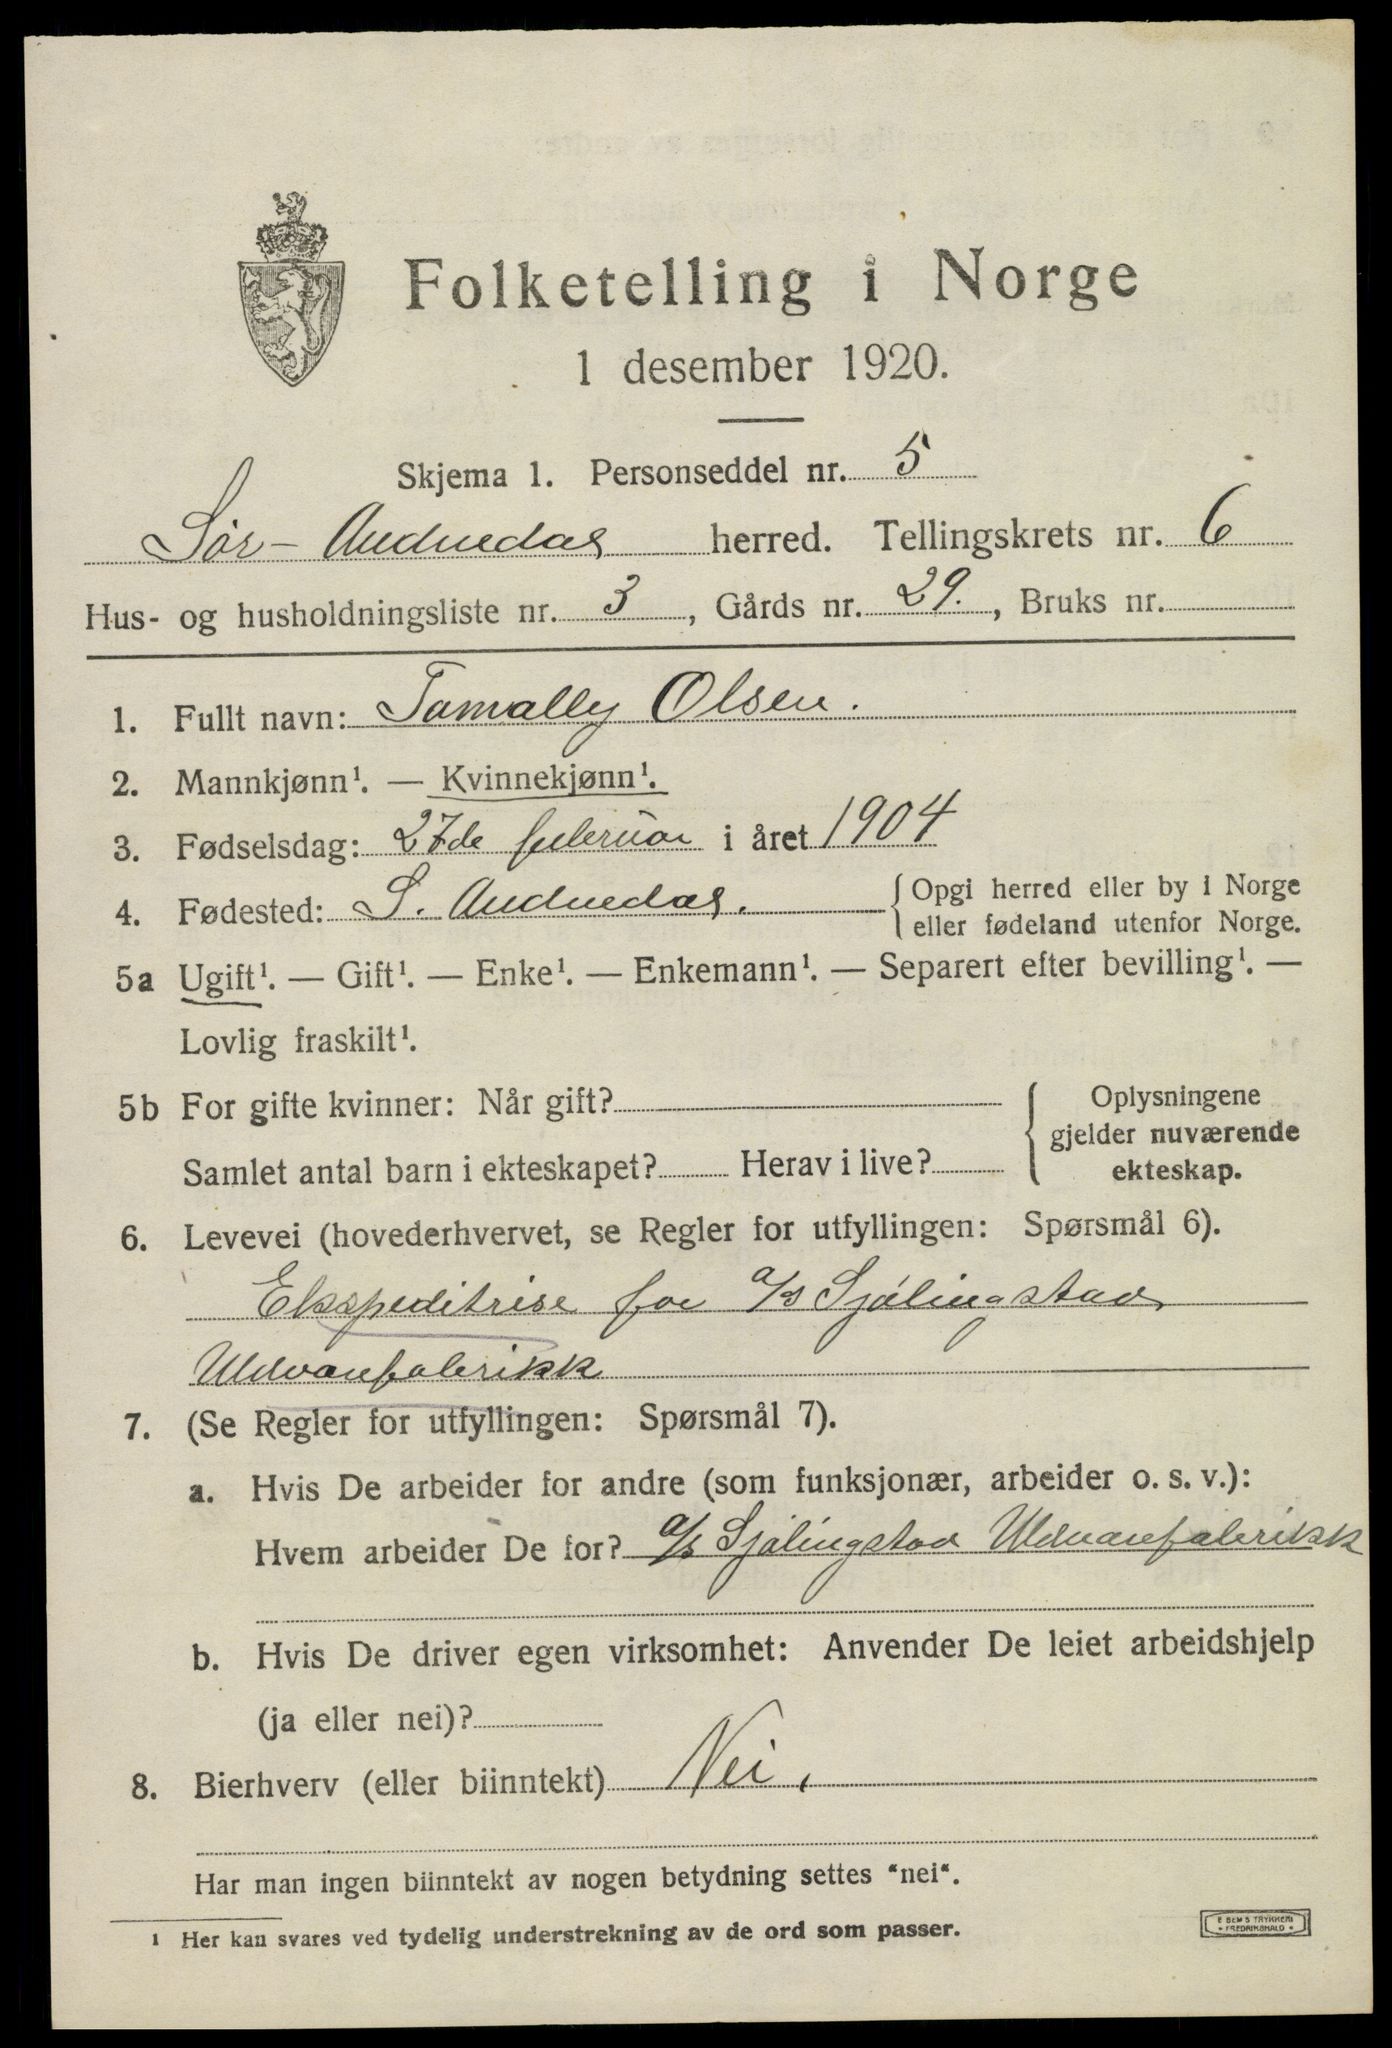 Folketelling i Norge
1 desember 1920.
Skjema 1. Personseddel nr. 5
Sør-Audnedal herred. Tellingskrets nr. 6
Hus- og husholdningsliste nr. 3, Gårds nr. 29., Bruks nr.
1. Fullt navn: Tomally Olsen.
2. Mannkjønn¹. — Kvinnekjønn¹.
3. Fødselsdag: 27de februar i året 1904
4. Fødested: S. Audnedal. { Opgi herred eller by i Norge
eller fødeland utenfor Norge.
5a Ugift¹. — Gift¹. — Enke¹. — Enkemann¹. — Separert efter bevilling¹. —
Lovlig fraskilt¹.
5b For gifte kvinner: Når gift?
Samlet antal barn i ekteskapet? Herav i live?
{ Oplysningene
gjelder nuværende
ekteskap.
6. Levevei (hovederhvervet, se Regler for utfyllingen: Spørsmål 6).
Ekspeditrise for a/s Sjølingstad
Uldvarefabrikk
7. (Se Regler for utfyllingen: Spørsmål 7).
a. Hvis De arbeider for andre (som funksjonær, arbeider o. s. v.):
Hvem arbeider De for? a/s Sjølingstad Uldvarefabrikk
b. Hvis De driver egen virksomhet: Anvender De leiet arbeidshjelp
(ja eller nei)?
8. Bierhverv (eller biinntekt) Nei.
Har man ingen biinntekt av nogen betydning settes "nei".
¹ Her kan svares ved tydelig understrekning av de ord som passer.
E SEM S TRYKKERI
• FREDRIKSHALD •